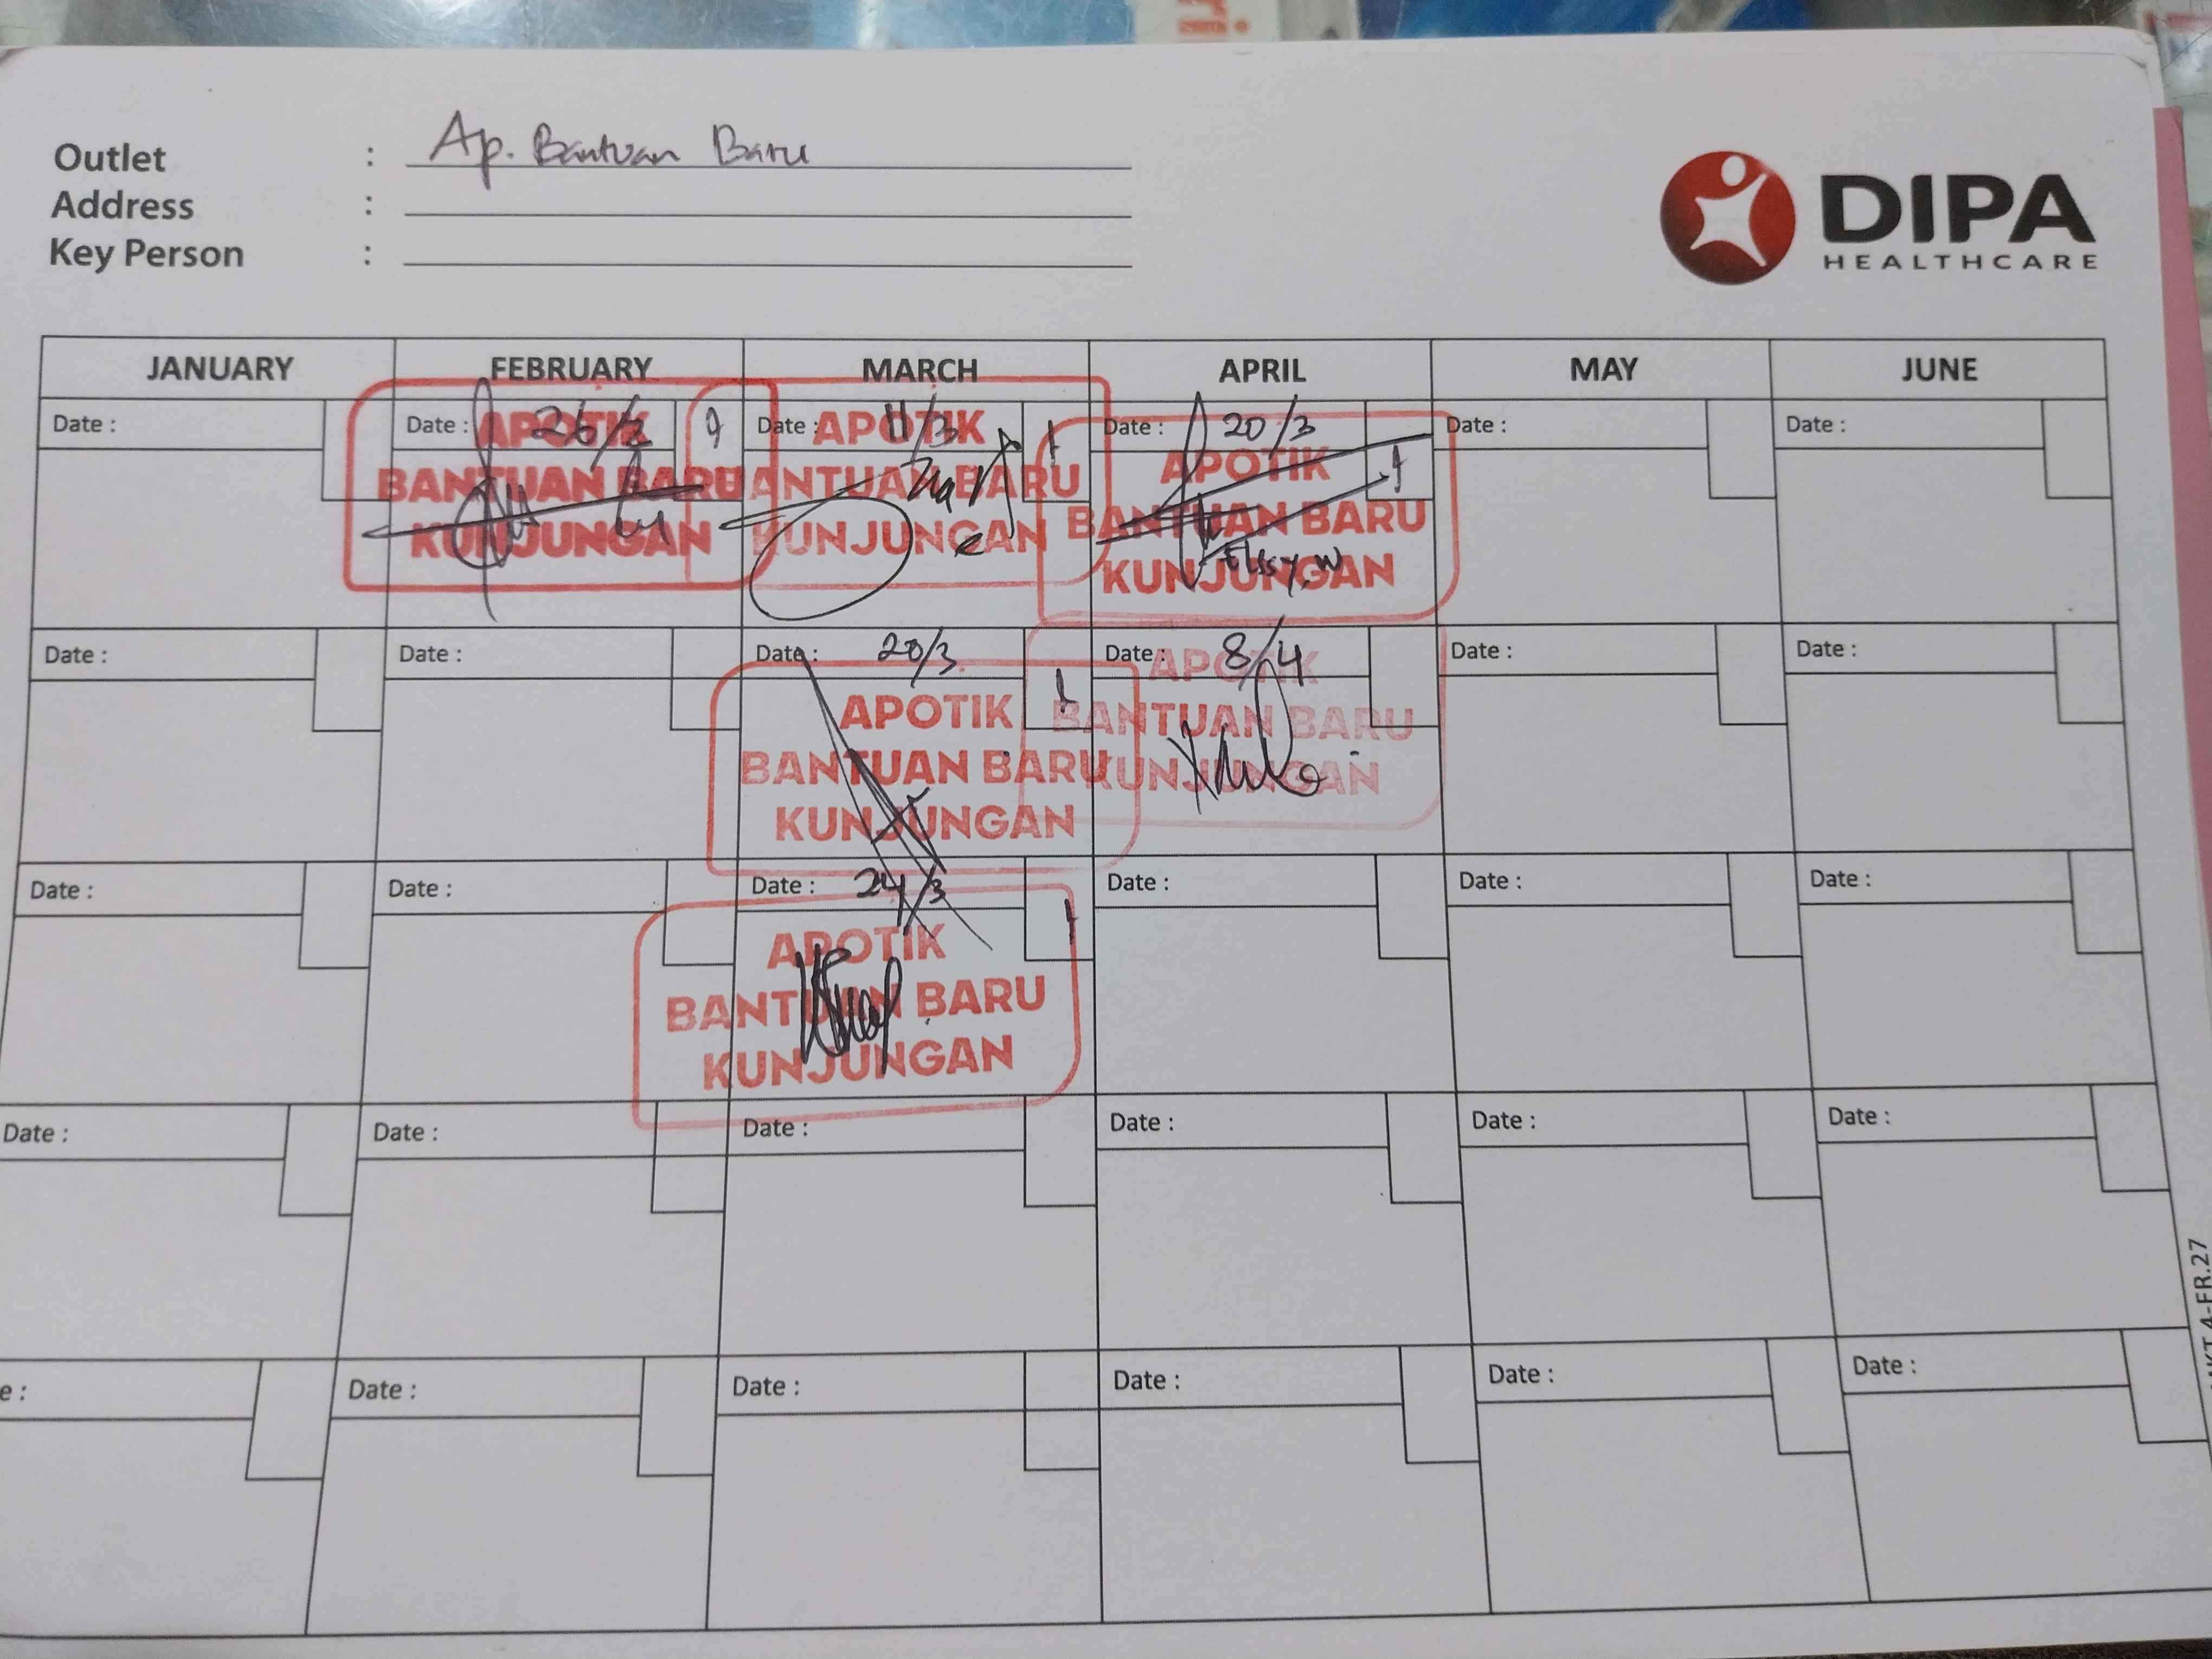 Outlet : Ap. Bantuan Baru
Address :
Key Person :
DIPA
HEALTHCARE
JANUARY FEBRUARY MARCH APRIL MAY JUNE
Date : Date : 26/2 Date : 11/3 Date : 20/3 Date : Date :
APOTIK
BANTUAN BARU
KUNJUNGAN
APOTIK
BANTUAN BARU
KUNJUNGAN
APOTIK
BANTUAN BARU
KUNJUNGAN
Elssy.W
Date : Date : Date : 20/3 Date : 8/4 Date : Date :
APOTIK
BANTUAN BARU
KUNJUNGAN
APOTIK
BANTUAN BARU
KUNJUNGAN
Date : Date : Date : 24/3 Date : Date : Date :
APOTIK
BANTUAN BARU
KUNJUNGAN
Date : Date : Date : Date : Date : Date :
e : Date : Date : Date : Date : Date :
4-FR.27